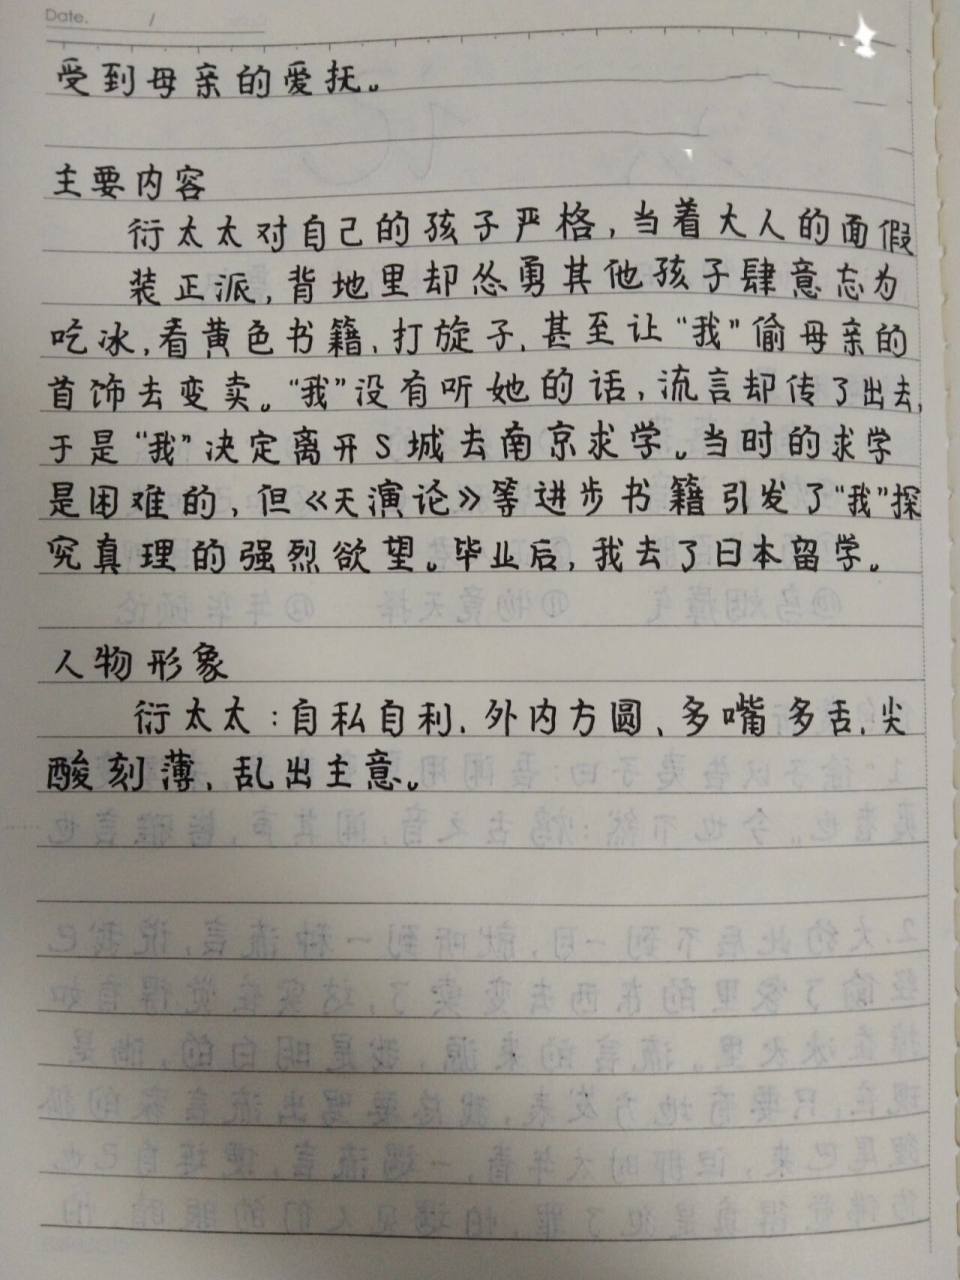 Date. /
受到母亲的爱抚。
主要内容
衍太太对自己的孩子严格,当着大人的面假
装正派,背地里却怂勇其他孩子肆意忘为
吃冰,看黄色书籍、打旋子,甚至让“我”偷母亲的
首饰去变卖。“我”没有听她的话,流言却传了出去,
于是“我”决定离开S城去南京求学。当时的求学
是困难的,但《天演论》等进步书籍引发了“我”探
究真理的强烈欲望。毕业后,我去了日本留学。
人物形象
衍太太:自私自利、外内方圆、多嘴多舌、尖
酸刻薄、乱出主意。